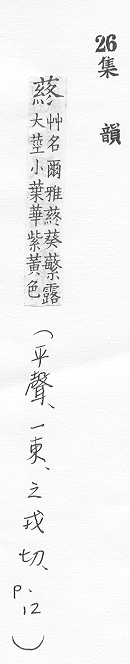 26
集韻
蔠
艸名爾雅蔠葵蘩露
大莖小葉華紫黃色
（平聲、一東、之戎切、P.12）